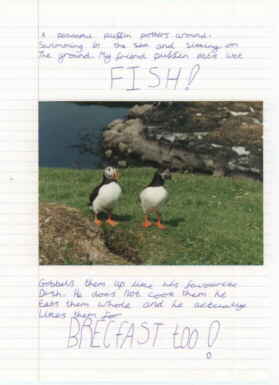 A peaceful puffin potters around.
Swimming in the sea and sitting on
The ground. My friend puffin eats wet
FISH!
Gobbels them up like his favourite
Dish. He does Not cook them he
Eats them whole and he actually
Likes them for
BRECFAST too!